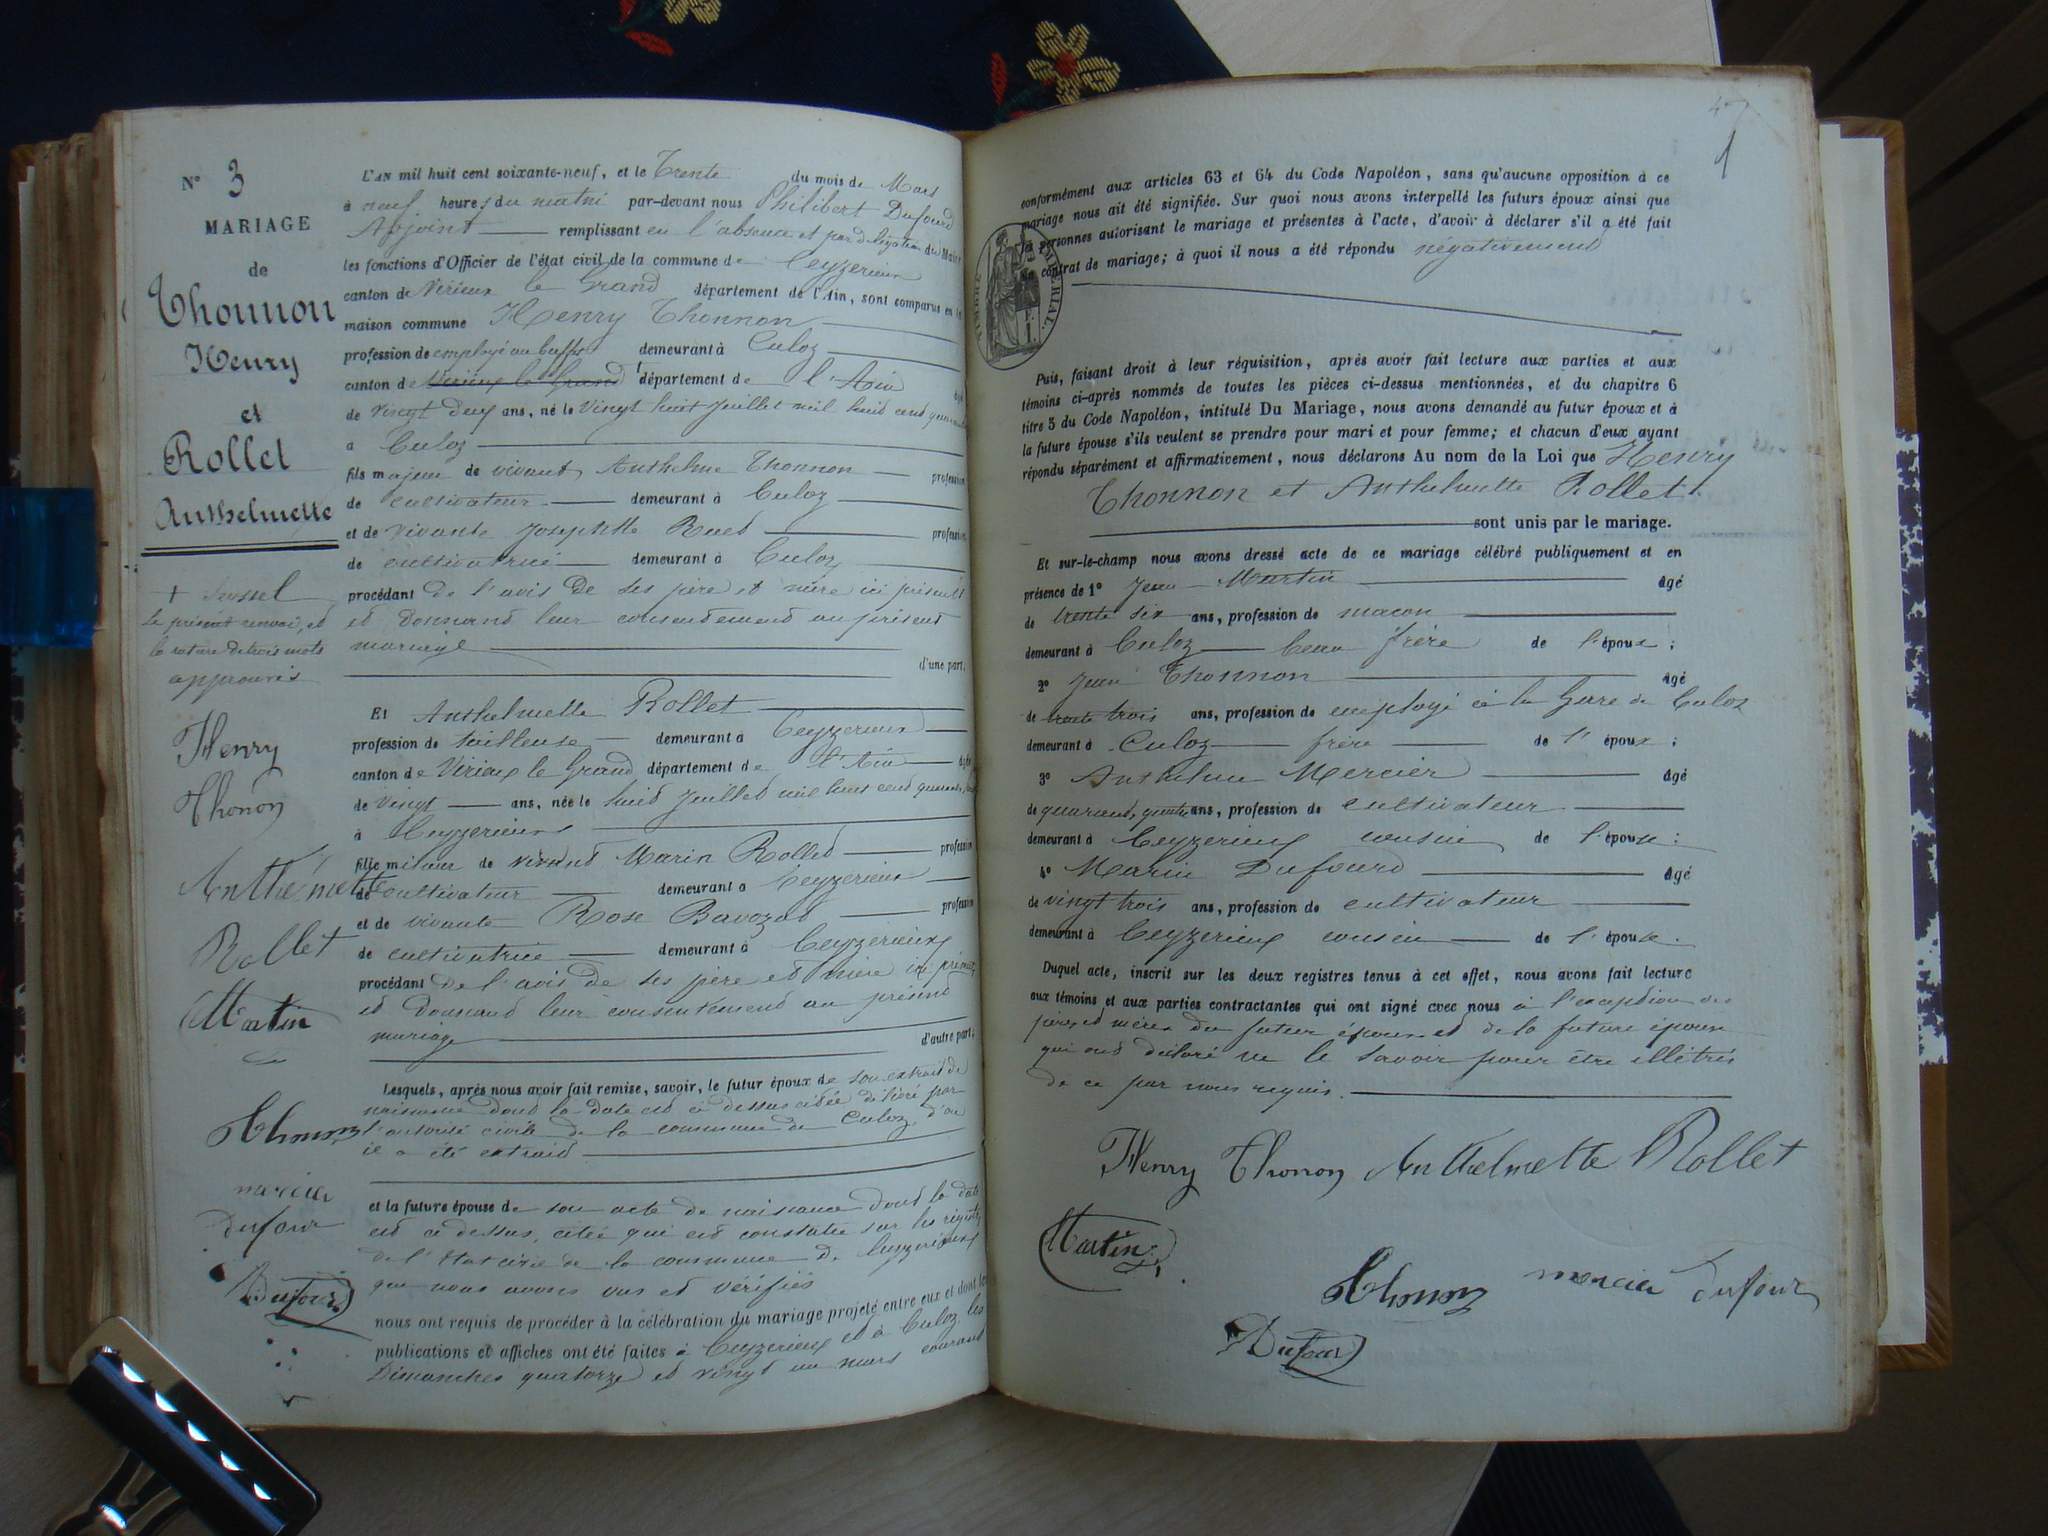 N° 3
MARIAGE
de
Thonnon
Henry
et
Rollet
Anthelmette
+ Seyssel
Le présent renvoi, et
la rature de trois mots
approuvés
Henry
Thonon
Anthémette
Rollet
Martin
Thonon
mercier
dufour
Dufour
L'AN mil huit cent soixante-neuf, et le Trente du mois de Mars
à neuf heures du matin par-devant nous Philibert Dufourd
Adjoint remplissant en l'absence et par délégation du Maire
les fonctions d'Officier de l'état civil de la commune de Ceyzerieux
canton de Virieux le Grand département de l'Ain, sont comparus en la
maison commune Henry Thonnon
profession de employé au buffet demeurant à Culoz
canton de Virieux le Grand + département de l'Ain âgé
de vingt deux ans, né le vingt huit Juillet mil huit cent
à Culoz
fils majeur de vivant Anthelme Thonnon profession
de cultivateur demeurant à Culoz
et de vivante Josephtte profession
de cultivatrice demeurant à Culoz
procédant de l'avis de ses père et mère ici présents
et donnand leur consendemend au présent
mariage
d'une part,
Et Anthelmette Rollet
profession de tailleuse demeurant à Ceyzerieux
canton de Virieux le Grand département de l'Ain âgée
de vingt ans, née le huid Juillet mil huit cend
à Ceyzerieux
fille mineur de vivand Marin Rolled profession
de cultivateur demeurant à Ceyzerieux
et de vivante Rose Bavozat profession
de cultivatrice demeurant à Ceyzerieux
procédant de l'avis de ses père et mère ici présents
et donnand leur consentemend au présend
mariage d'autre part;
Lesquels, après nous avoir fait remise, savoir, le futur époux de son extrait de
naissance dond la date est ci dessus citée délivré par
l'autorité civile de la commune de Culoz d'ou
il a été extraid
et la future épouse de son acte de naissance dond la date
est ci dessus citée qui est constatée sur les registres
de l'état civil de la commune de Ceyzerieux
que nous avons vus et vérifiés
nous ont requis de procéder à la célébration du mariage projeté entre eux et dont les
publications et affiches ont été faites à Ceyzerieux et à Culoz les
Dimanches quatorze et vingt un mars courand
conformément aux articles 63 et 64 du Code Napoléon, sans qu'aucune opposition à ce
mariage nous ait été signifiée. Sur quoi nous avons interpellé les futurs époux ainsi que
les personnes autorisant le mariage et présentes à l'acte, d'avoir à déclarer s'il a été fait
un contrat de mariage; à quoi il nous a été répondu négativemend
TIMBRE IMPÉRIAL.
Puis, faisant droit à leur réquisition, après avoir fait lecture aux parties et aux
témoins ci-après nommés de toutes les pièces ci-dessus mentionnées, et du chapitre 6
titre 5 du Code Napoléon, intitulé Du Mariage, nous avons demandé au futur époux et à
la future épouse s'ils veulent se prendre pour mari et pour femme; et chacun d'eux ayant
répondu séparément et affirmativement, nous déclarons Au nom de la Loi que Henry
Thonnon et Anthelmette Rollet
sont unis par le mariage.
Et sur-le-champ nous avons dressé acte de ce mariage célébré publiquement et en
présence de 1° Jean Martin âgé
de trente six ans, profession de macon
demeurant à Culoz beau frère de l'épouse;
2° Jean Thonnon âgé
de trente trois ans, profession de employé à la Gare de Culoz
demeurant à Culoz frère de l'époux;
3° Anthelme Mercier âgé
de ans, profession de cultivateur
demeurant à Ceyzerieux cousin de l'épouse;
4° Marin Dufourd âgé
de vingt trois ans, profession de cultivateur
demeurant à Ceyzerieux cousin de l'épouse.
Duquel acte, inscrit sur les deux registres tenus à cet effet, nous avons fait lecture
aux témoins et aux parties contractantes qui ont signé avec nous à l'exception des
pères et mères du futur époux et de la future épouse
qui ond déclaré ne le savoir pour être illétrés
de ce par nous requis.
Henry Thonon Anthelmette Rollet
Martin
Thonon mercier Dufour
Dufour